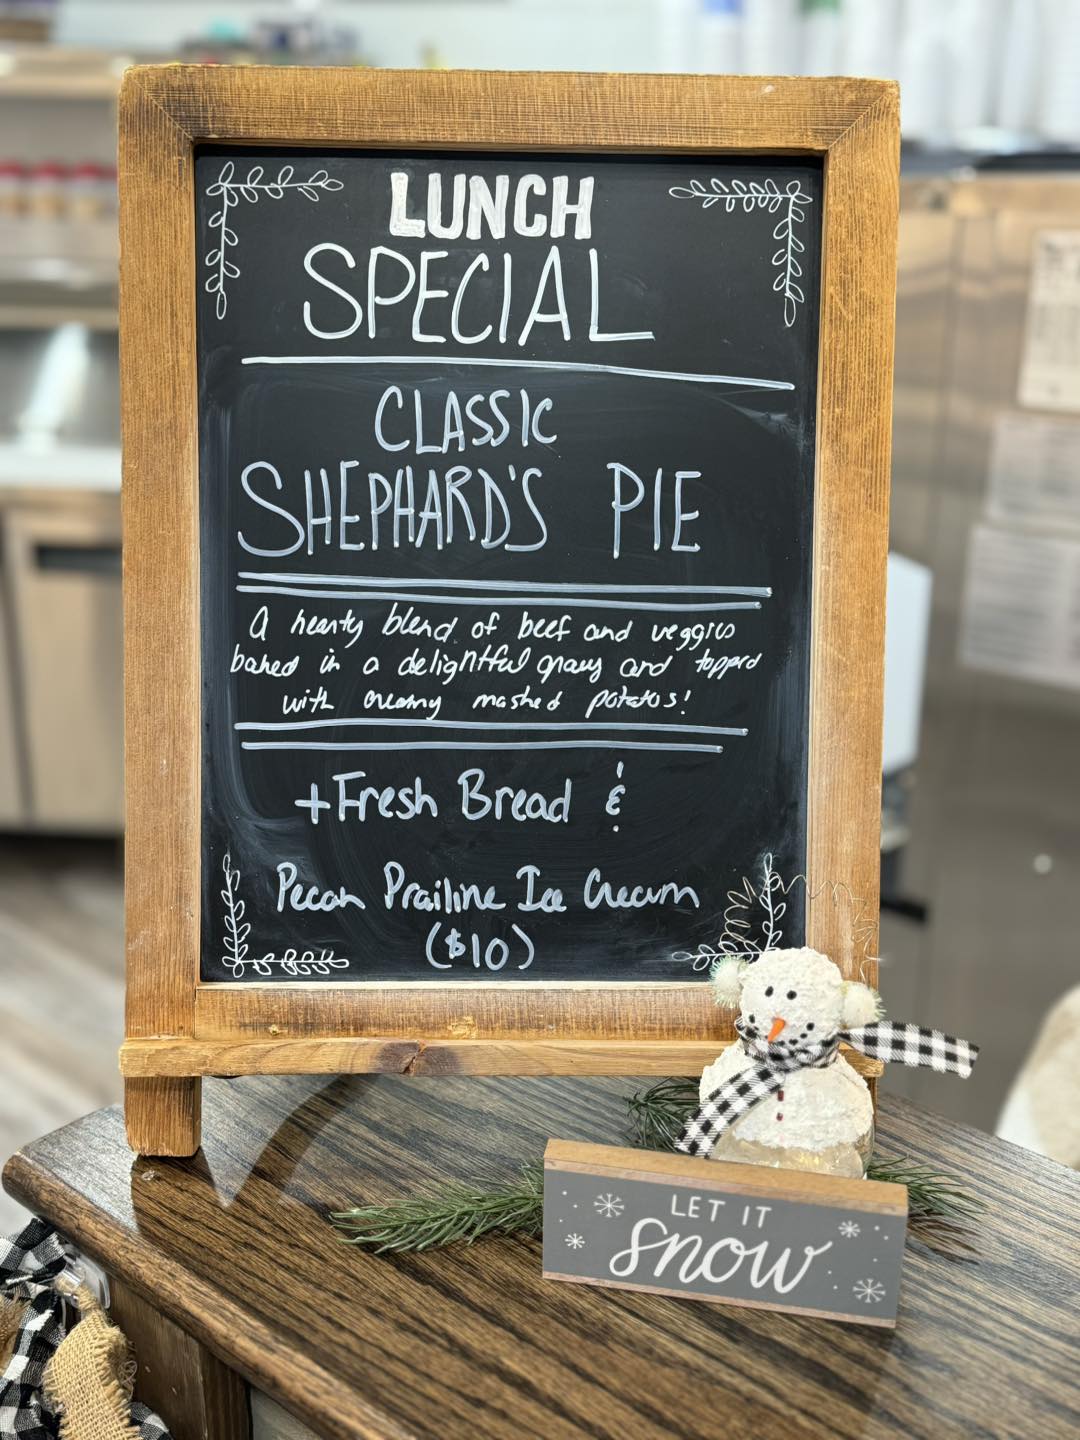 LUNCH
SPECIAL
CLASSIC
SHEPHARD'S PIE
A hearty blend of beef and veggies
baked in a delightful gravy and topped
with creamy mashed potatoes!
+Fresh Bread &
Pecan Prailine Ice Cream
($10)
LET IT
snow